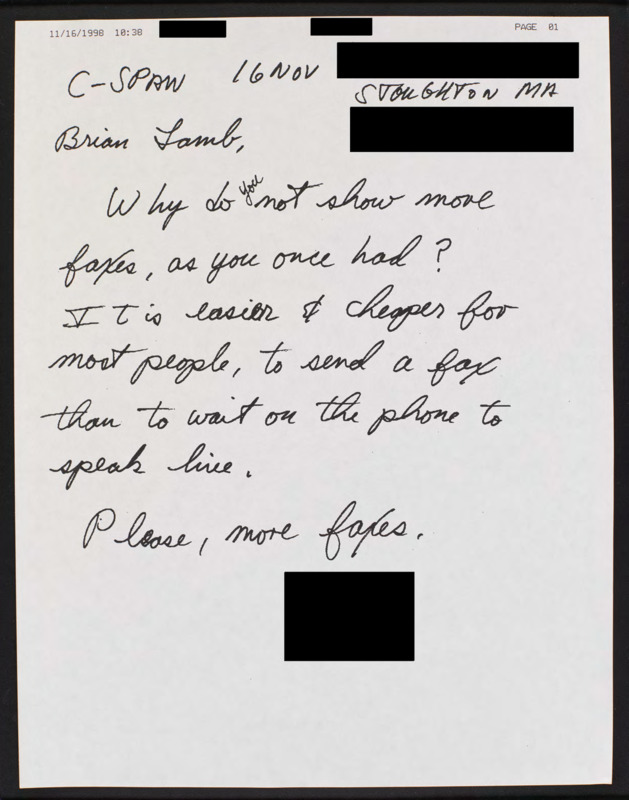 11/16/1998 10:38 PAGE 01
C-SPAN 16 NOV
STOUGHTON MA
Brian Lamb,
Why do you not show more
faxes, as you once had?
It is easier & cheaper for
most people, to send a fax
than to wait on the phone to
speak live.
Please, more faxes.